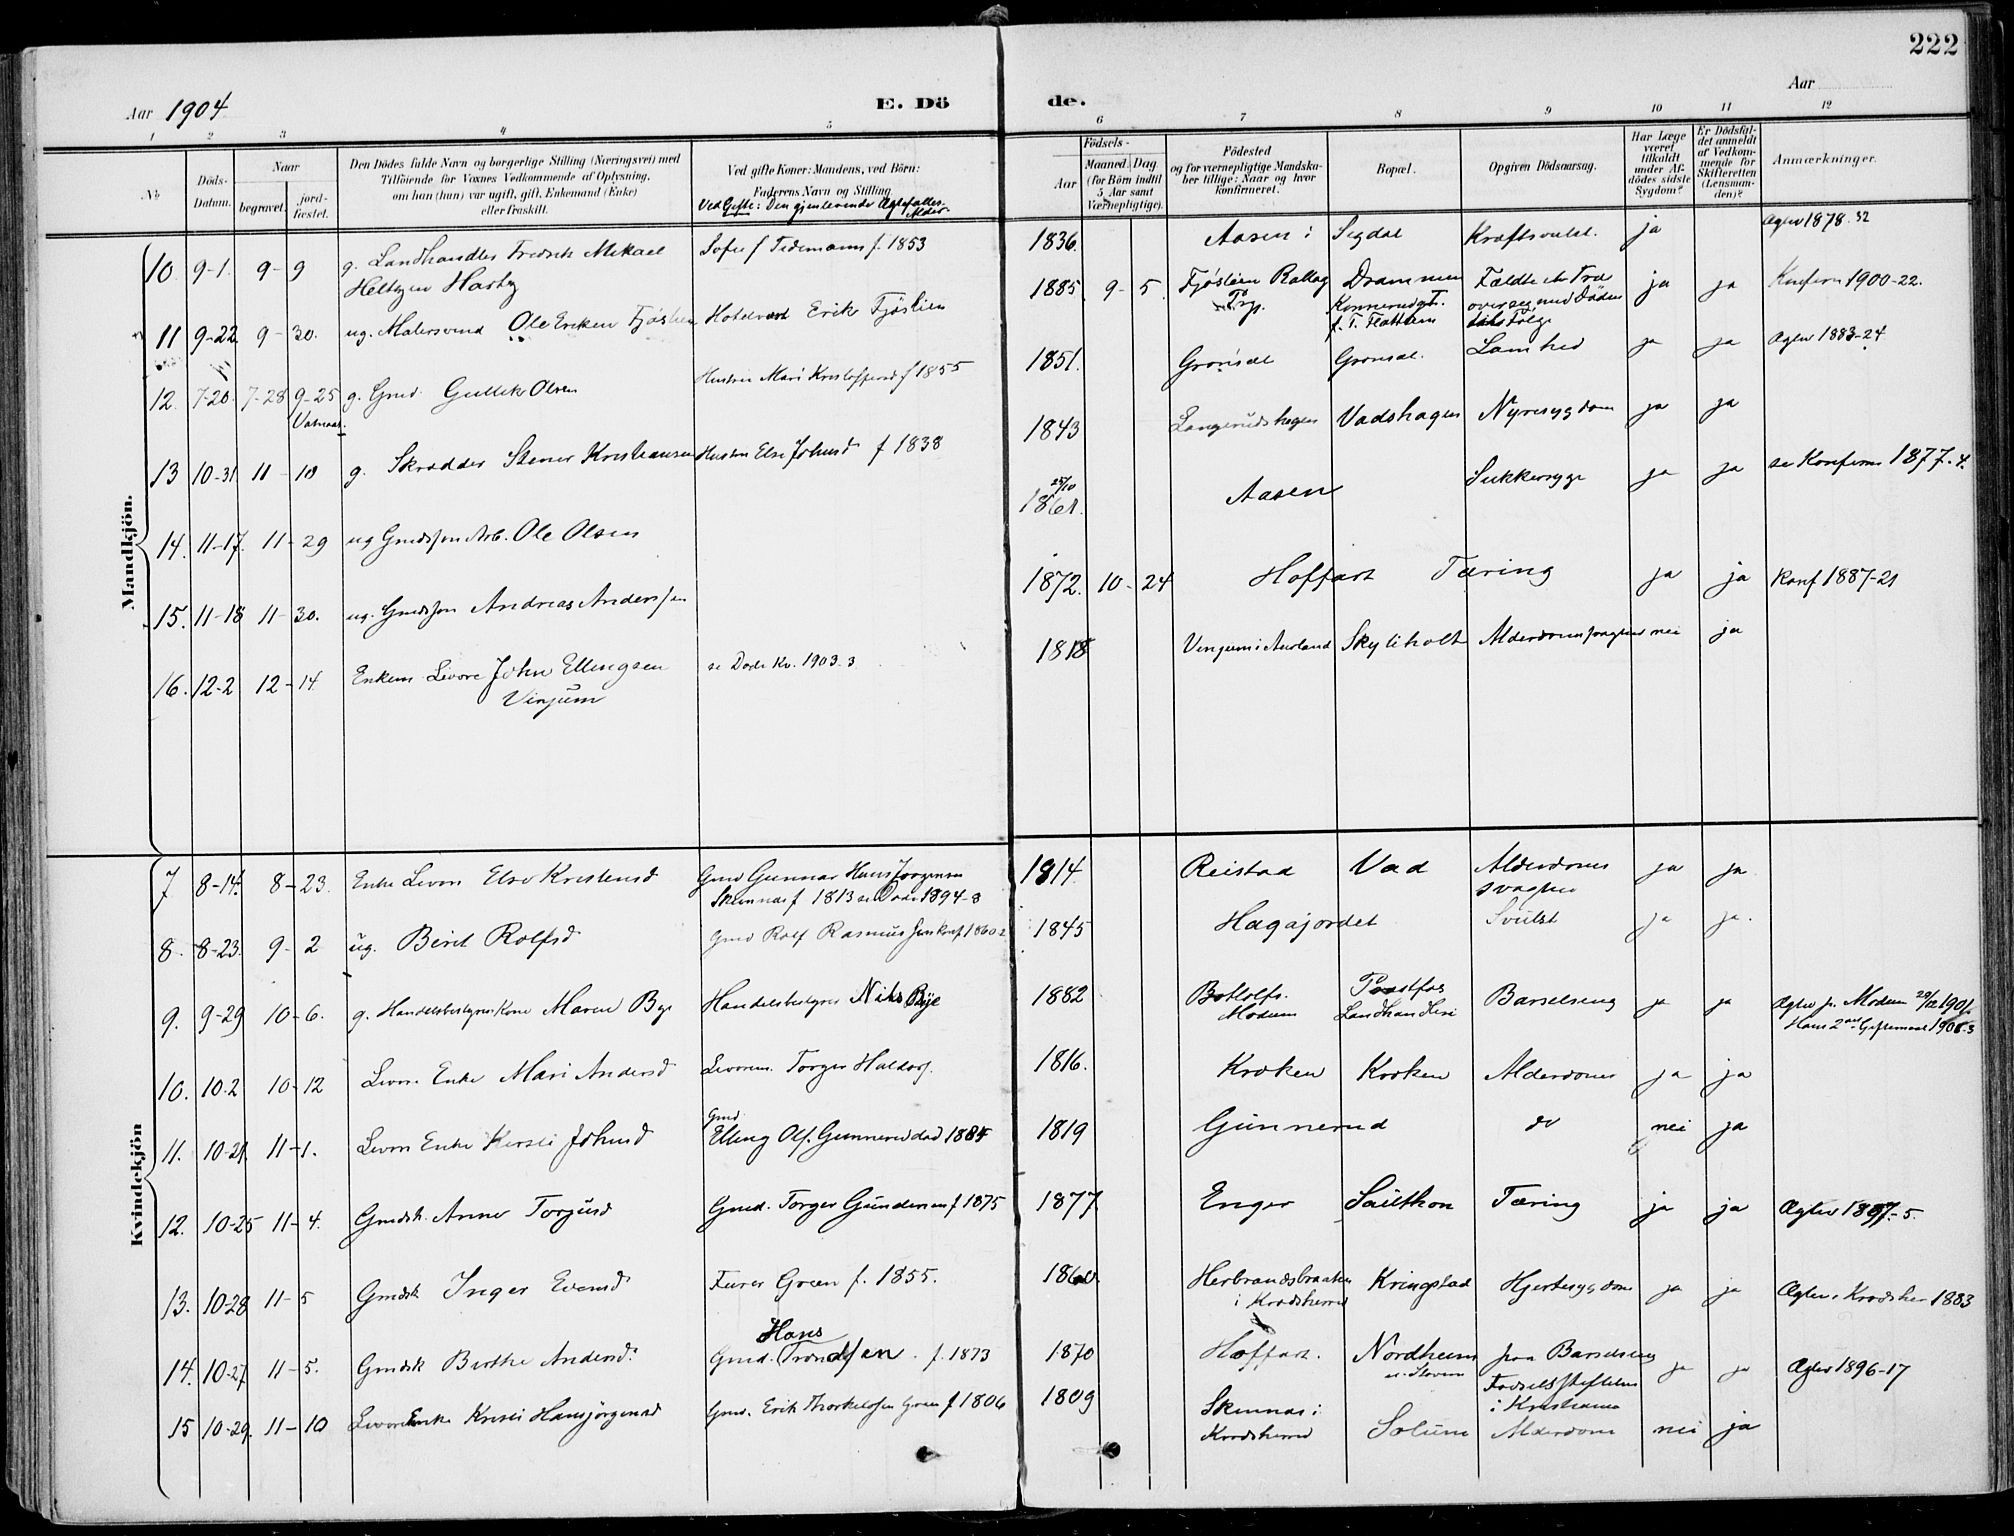 222
Aar 1904
E. Dö
de.
Aar
1 2 3 4 5 6 7 8 9 10 11 12
No
Döds-Datum.
Naar
begravet.
jordfæstet.
Den Dödes fulde Navn og borgerlige Stilling (Næringsvei) med
Tilföiende for Voxnes Vedkommende af Oplysning,
om han (hun) var ugift, gift, Enkemand (Enke)
eller fraskilt.
Ved gifte Koner: Mandens, ved Börn:
Faderens Navn og Stilling.
Ved Gifte: Den gjenlevende Ægtefælles Alder.
Födsels-
Aar
Maaned. Dag.
(for Börn indtil
5 Aar samt
Værnepligtige).
Födested
og for værnepligtige Mandskaber tillige: Naar og hvor
konfirmeret.
Bopæl.
Opgiven Dödsaarsag.
Har Læge været tilkaldt under Afdödes sidste Sygdom?
Er Dödsfaldet anmeldt af Vedkommende for Skifteretten (Lensmanden)?
Anmærkninger.
Mandkjön.
10 9-1. 9-9 g. Landhandler Fredrik Mikael Sofie f Tidemann f. 1853 1836. Aasen i Sigdal Kræftsvulst. ja Ægtev 1878. 32
Heltzen Harby
11 9-22 9-30. ug. Malersvend Ole Eriksen Fjøslien Hotelvært Erik Fjøslien 1885. 9-5. Fjøslien Rollag Drammen Faldt et Træ ja ja Konfirm 1900-22.
over seg med Døden
til Følge
12. 7-20. 7-28 9-25 g. Gmd. Gullik Olsen Hustru Mari Kristoffersd f 1855 1851. Grønsdl Grønsdl. ja ja Ægtev 1883-24
13 10-31 11-10 g. Skrædder Stener Kristiansen Hustru Else Johnsd f 1838 1843 Langerudshagen Vadshagen Nyresygdom ja ja
14. 11-17. 11-29 ug Gmdssøn Arb. Ole Olsen 25/10 1861. Aasen Sukkersyge ja ja se Konfirm 1877. 4.
15. 11-18 11-30. ug. Gmdssøn Andreas Anderssen 1872. 10-24 Hoffart Tæring ja ja Konf 1887-21
16. 12-2 12-14. Enkem. Levore John Ellingsen se Døde Kv. 1903-3 1818 Vinjum i Aurland Skyliholt Alderdomssvaghed nei ja
Vinjum
Kvindekjön
7 8-14. 8-23. Enke Levor Else Kristensd Gmd Gunnar Hans Jørgensen 1814. Reistad Vad Alderdoms ja ja
Skinnas f 1813 se Døde 1894-8 svaghed
8. 8-23. 9-2 ug. Berit Rolfsd Gmd Rolf Rasmussen Konf 1860 1845 Hagajordet Svulst ja ja.
9. 9-29 10-6. g. Handelsbestyrers Kone Maren Bye Handelsbestyrer Nils Bye 1882 Botolfs. Modum Prestfos Landhandleri Barselseng ja ja Ægtev fr. Modum 29/12 1901.
Hans 2det Giftermaal 1906.3
10. 10-2 10-12 Levor. Enke Mari Andersd Levorem. Torger Haldorss. 1816. Kroken Kroken Alderdoms ja ja
11. 10-21. 11-1. Levor Enke Kersti Johnsd Gmd Elling Ols. Gunnerud død 1884 1819 Gunnerud do nei ja
12. 10-25 11-4. Gmdsk. Anne Torgusd Gmd. Torger Gundersen f 1875 1877 Enger Saulthon Tæring ja ja Ægtev 1897-5.
13. 10-28 11-5 Gmdsk Inger Evensd Furer Green f. 1855. 1860. Herbrandsbraaten Kringstad Hjertesygdom ja ja Ægtev. Krødsher 1883
i Krødsherred
14. 10-27 11-5. Gmdsk Berthe Andersd. Gmd. Hans Trondsen. f. 1873 1870 Hoffart. Nordheim paa Barselseng ja ja Ægtev 1896-17
Fødselsstiftelsen
i Kristiania
15 10-29. 11-10 Levor Enke Kristi Hansjørgensd Gmd. Erik Thorkelssen Green f 1806 1809 Skinnas i Solum Alderdom nei ja
Krødsherred